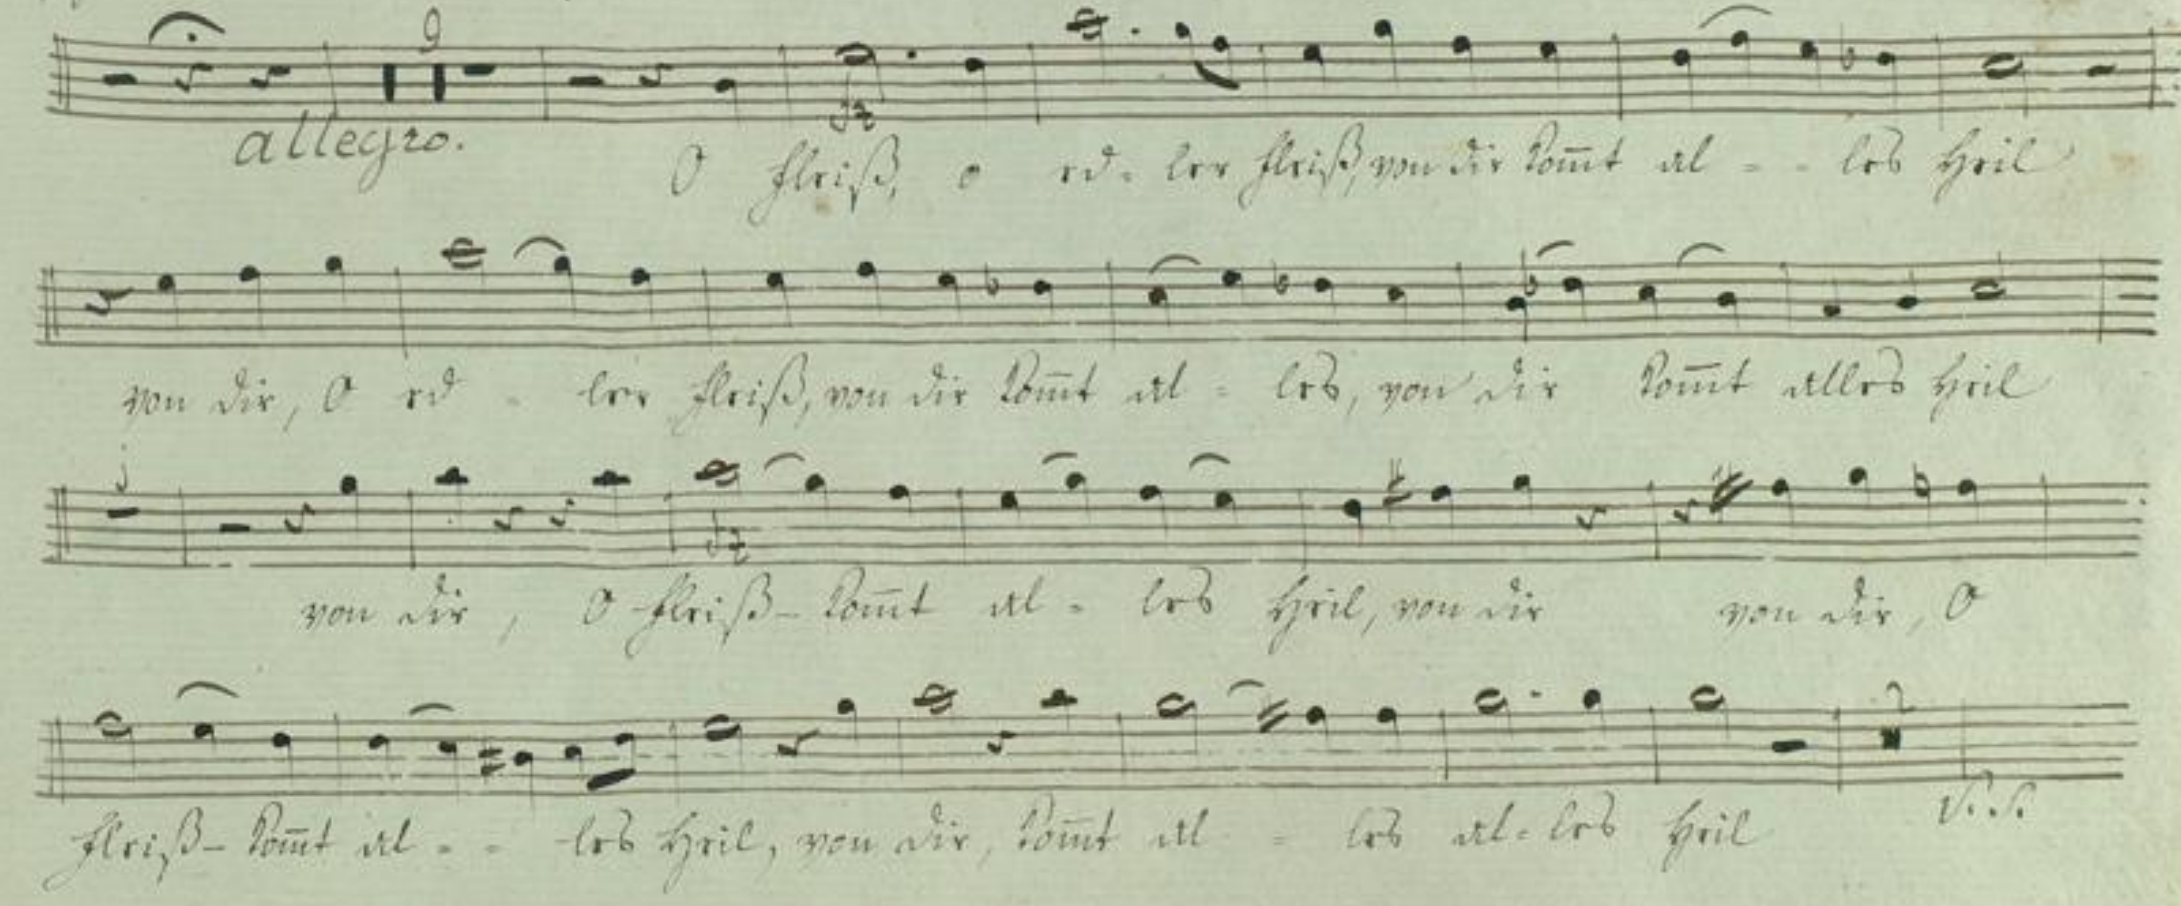 9
allegro.
O Fleiß, o ed- ler Fleiß, von dir kom̄t al - - les Heil
von dir, O ed - ler Fleiß, von dir kom̄t al - les, von dir kom̄t alles Heil
von dir, O Fleiß- kom̄t al - les Heil, von dir von dir, O
Fleiß- kom̄t al - - les Heil, von dir, kom̄t al - les al- les Heil
2
V. S.